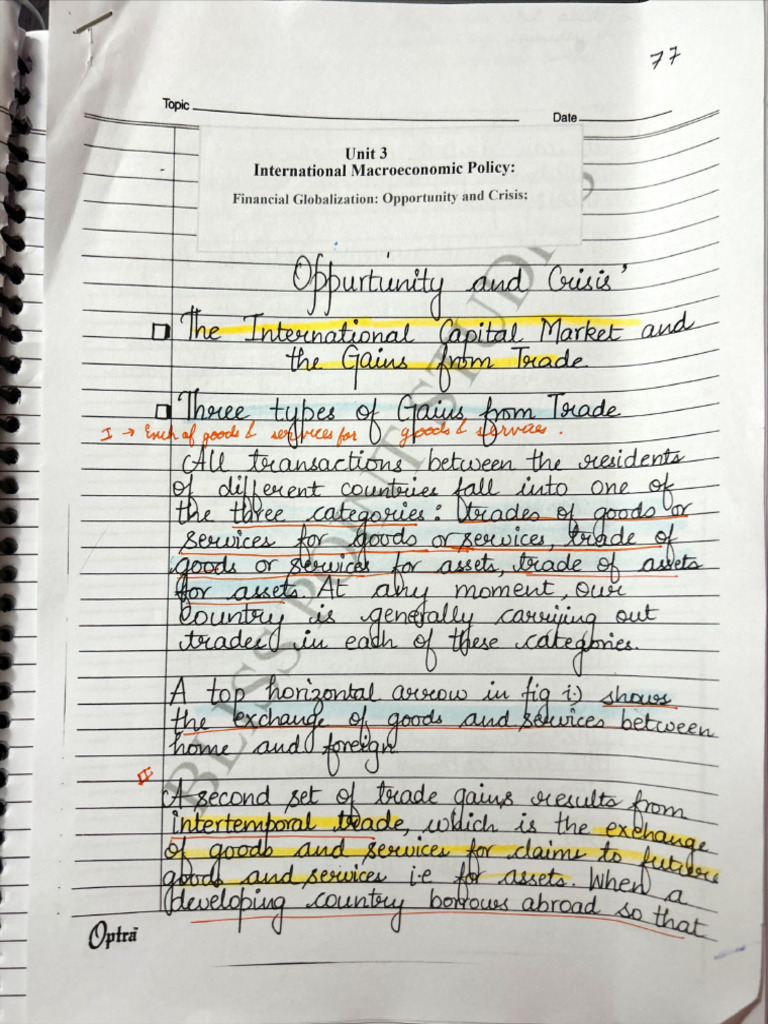 77
Topic
Date
Unit 3
International Macroeconomic Policy:
Financial Globalization: Opportunity and Crisis:
Oppurtunity and Crisis'
The International Capital Market and
the Gains from Trade.
Three types of Gains from Trade
I → Exch of goods & services for goods & services.
All transactions between the residents
of different countries fall into one of
the three categories: trades of goods or
services for goods or services, trade of
goods or services for assets, trade of assets
for assets. At any moment, our
country is generally carrying out
trades in each of these categories.
A top horizontal arrow in fig i) shows
the exchange of goods and services between
home and foreign
II
A second set of trade gains results from
intertemporal trade, which is the exchange
of goods and services for claims to future
goods and services i.e for assets. When a
developing country borrows abroad so that
Optra
BLISS POINT STUDI